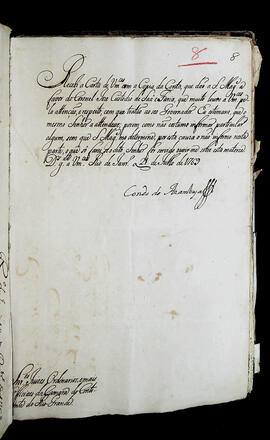 8 8
Recebi a Carta de Vm.ces com a Copia da Conta, que dão a S. Mag.e a
favor do Coronel Joze Custodio de Saá e Faria, que muito louvo a Vm.ces
pela attenção, e respeito, com que tratão ao seo Governador. Eu estimarei, que o
mesmo Senhor a attenda; porem como não costumo informar particular
algum, sem que S. Mag.e me determine, por esta cauza o não informo nesta
parte, o que só farei, se o dito Senhor for servido ouvir-me sobre esta materia.
D.s g.e a Vm.ces Rio de Janr.o de Julho de 1769
Conde de Azambuja
Juizes Ordinarios, e mais
Officiaes da Camara do Conti-
nente do Rio Grande.